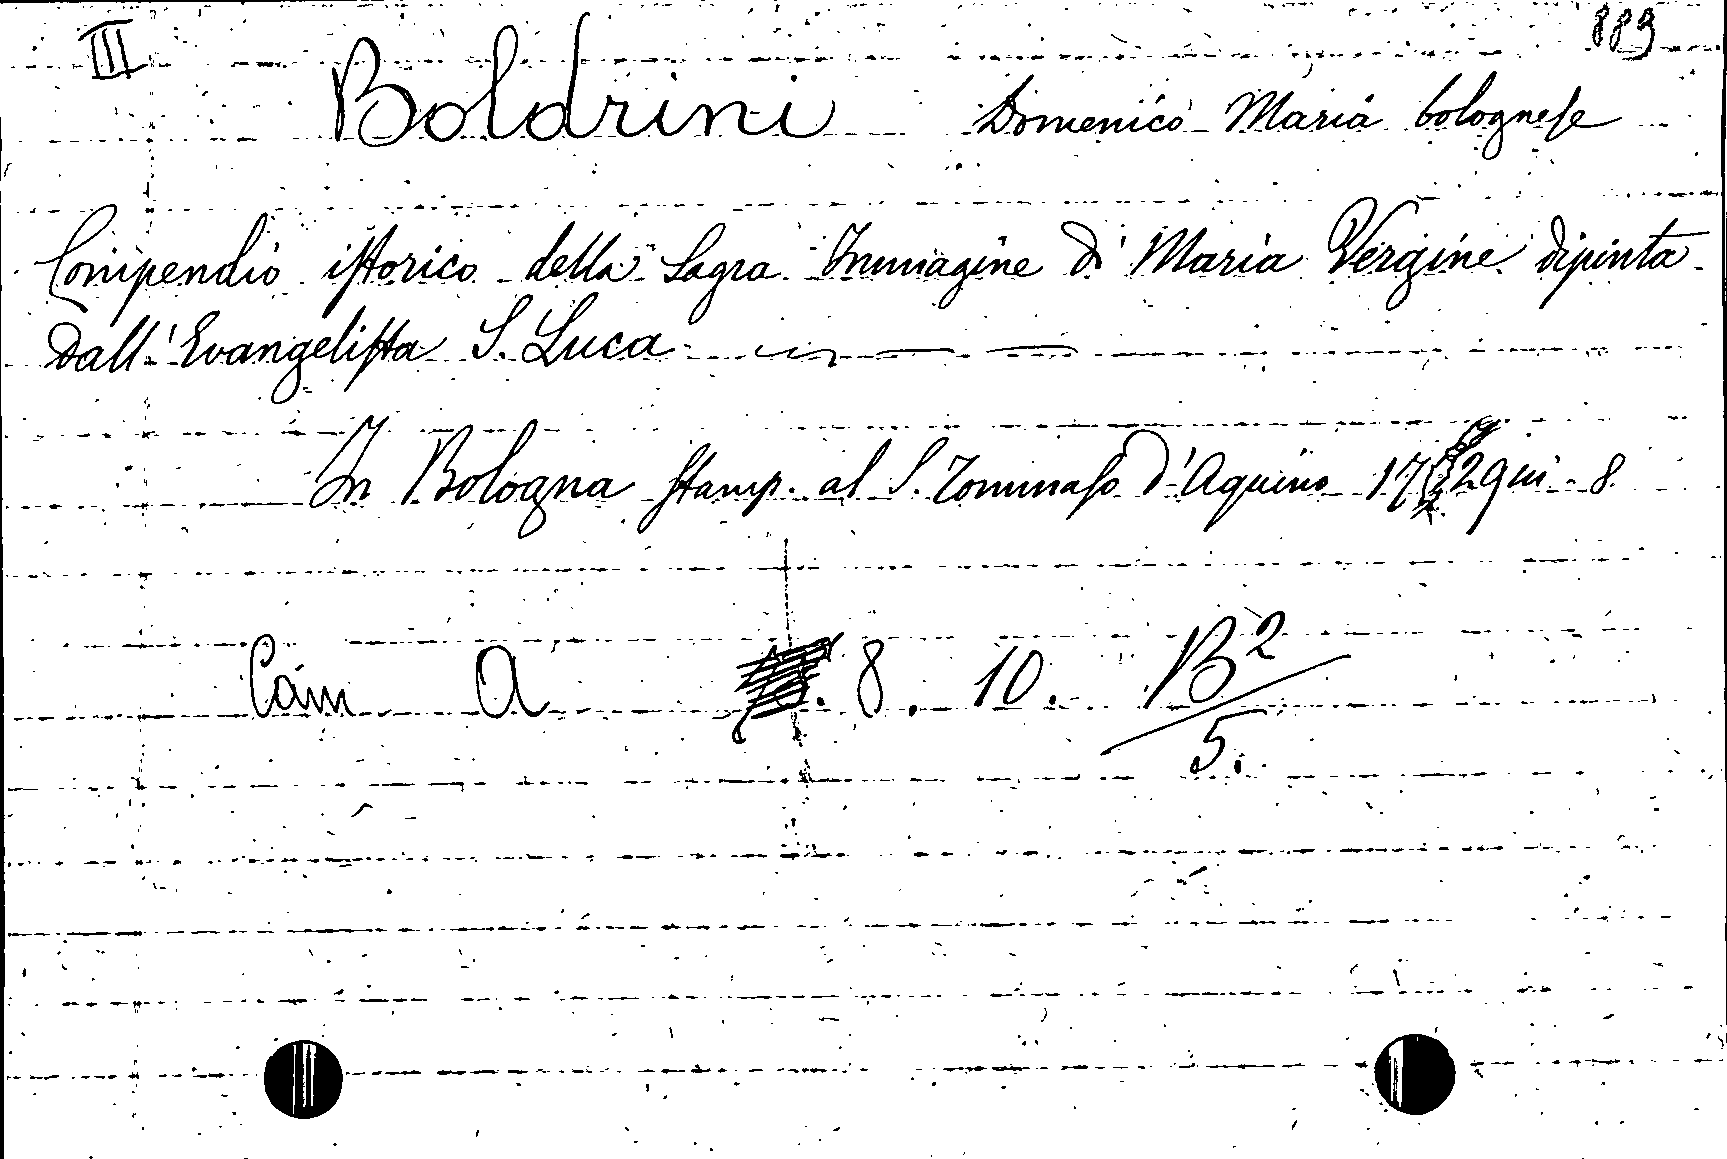 III 889
Boldrini Domenico Maria bolognese
Compendio istorico della Sagra Immagine di Maria Vergine dipinta
dall' Evangelista S. Luca
In Bologna stamp. al S. Tommaso d'Aquino in 8
Cam A 8. 10. B²/5.